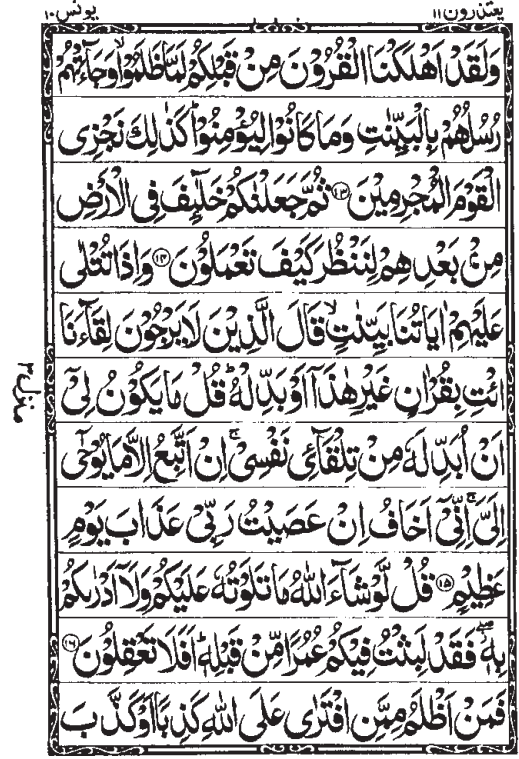 یعتذرون۱۱ یونس۱۰
وَلَقَدۡ اَهۡلَكۡنَا الۡقُرُوۡنَ مِنۡ قَبۡلِكُمۡ لَمَّا ظَلَمُوۡا ۙ وَجَآءَتۡهُمۡ
رُسُلُهُمۡ بِالۡبَيِّنٰتِ وَمَا كَانُوۡا لِيُؤۡمِنُوۡا ؕ كَذٰلِكَ نَجۡزِى
الۡقَوۡمَ الۡمُجۡرِمِيۡنَ ﴿۱۳﴾ ثُمَّ جَعَلۡنٰكُمۡ خَلٰٓٮِٕفَ فِى الۡاَرۡضِ
مِنۡۢ بَعۡدِهِمۡ لِنَنۡظُرَ كَيۡفَ تَعۡمَلُوۡنَ ﴿۱۴﴾ وَاِذَا تُتۡلٰى
عَلَيۡهِمۡ اٰيَاتُنَا بَيِّنٰتٍ ۙ قَالَ الَّذِيۡنَ لَا يَرۡجُوۡنَ لِقَآءَنَا
ائۡتِ بِقُرۡاٰنٍ غَيۡرِ هٰذَاۤ اَوۡ بَدِّلۡهُ ؕ قُلۡ مَا يَكُوۡنُ لِىۡۤ
اَنۡ اُبَدِّلَهٗ مِنۡ تِلۡقَآئِ نَفۡسِىۡ ۚ اِنۡ اَتَّبِعُ اِلَّا مَا يُوۡحٰۤى
اِلَىَّ ۚ اِنِّىۡۤ اَخَافُ اِنۡ عَصَيۡتُ رَبِّىۡ عَذَابَ يَوۡمٍ
عَظِيۡمٍ ﴿۱۵﴾ قُلْ لَّوۡ شَآءَ اللّٰهُ مَا تَلَوۡتُهٗ عَلَيۡكُمۡ وَلَاۤ اَدۡرٰٮكُمۡ
بِهٖ ۖ فَقَدۡ لَبِثۡتُ فِيۡكُمۡ عُمُرًا مِّنۡ قَبۡلِهٖ ؕ اَفَلَا تَعۡقِلُوۡنَ ﴿۱۶﴾
فَمَنۡ اَظۡلَمُ مِمَّنِ افۡتَرٰى عَلَى اللّٰهِ كَذِبًا اَوۡ كَذَّبَ
منزل۳